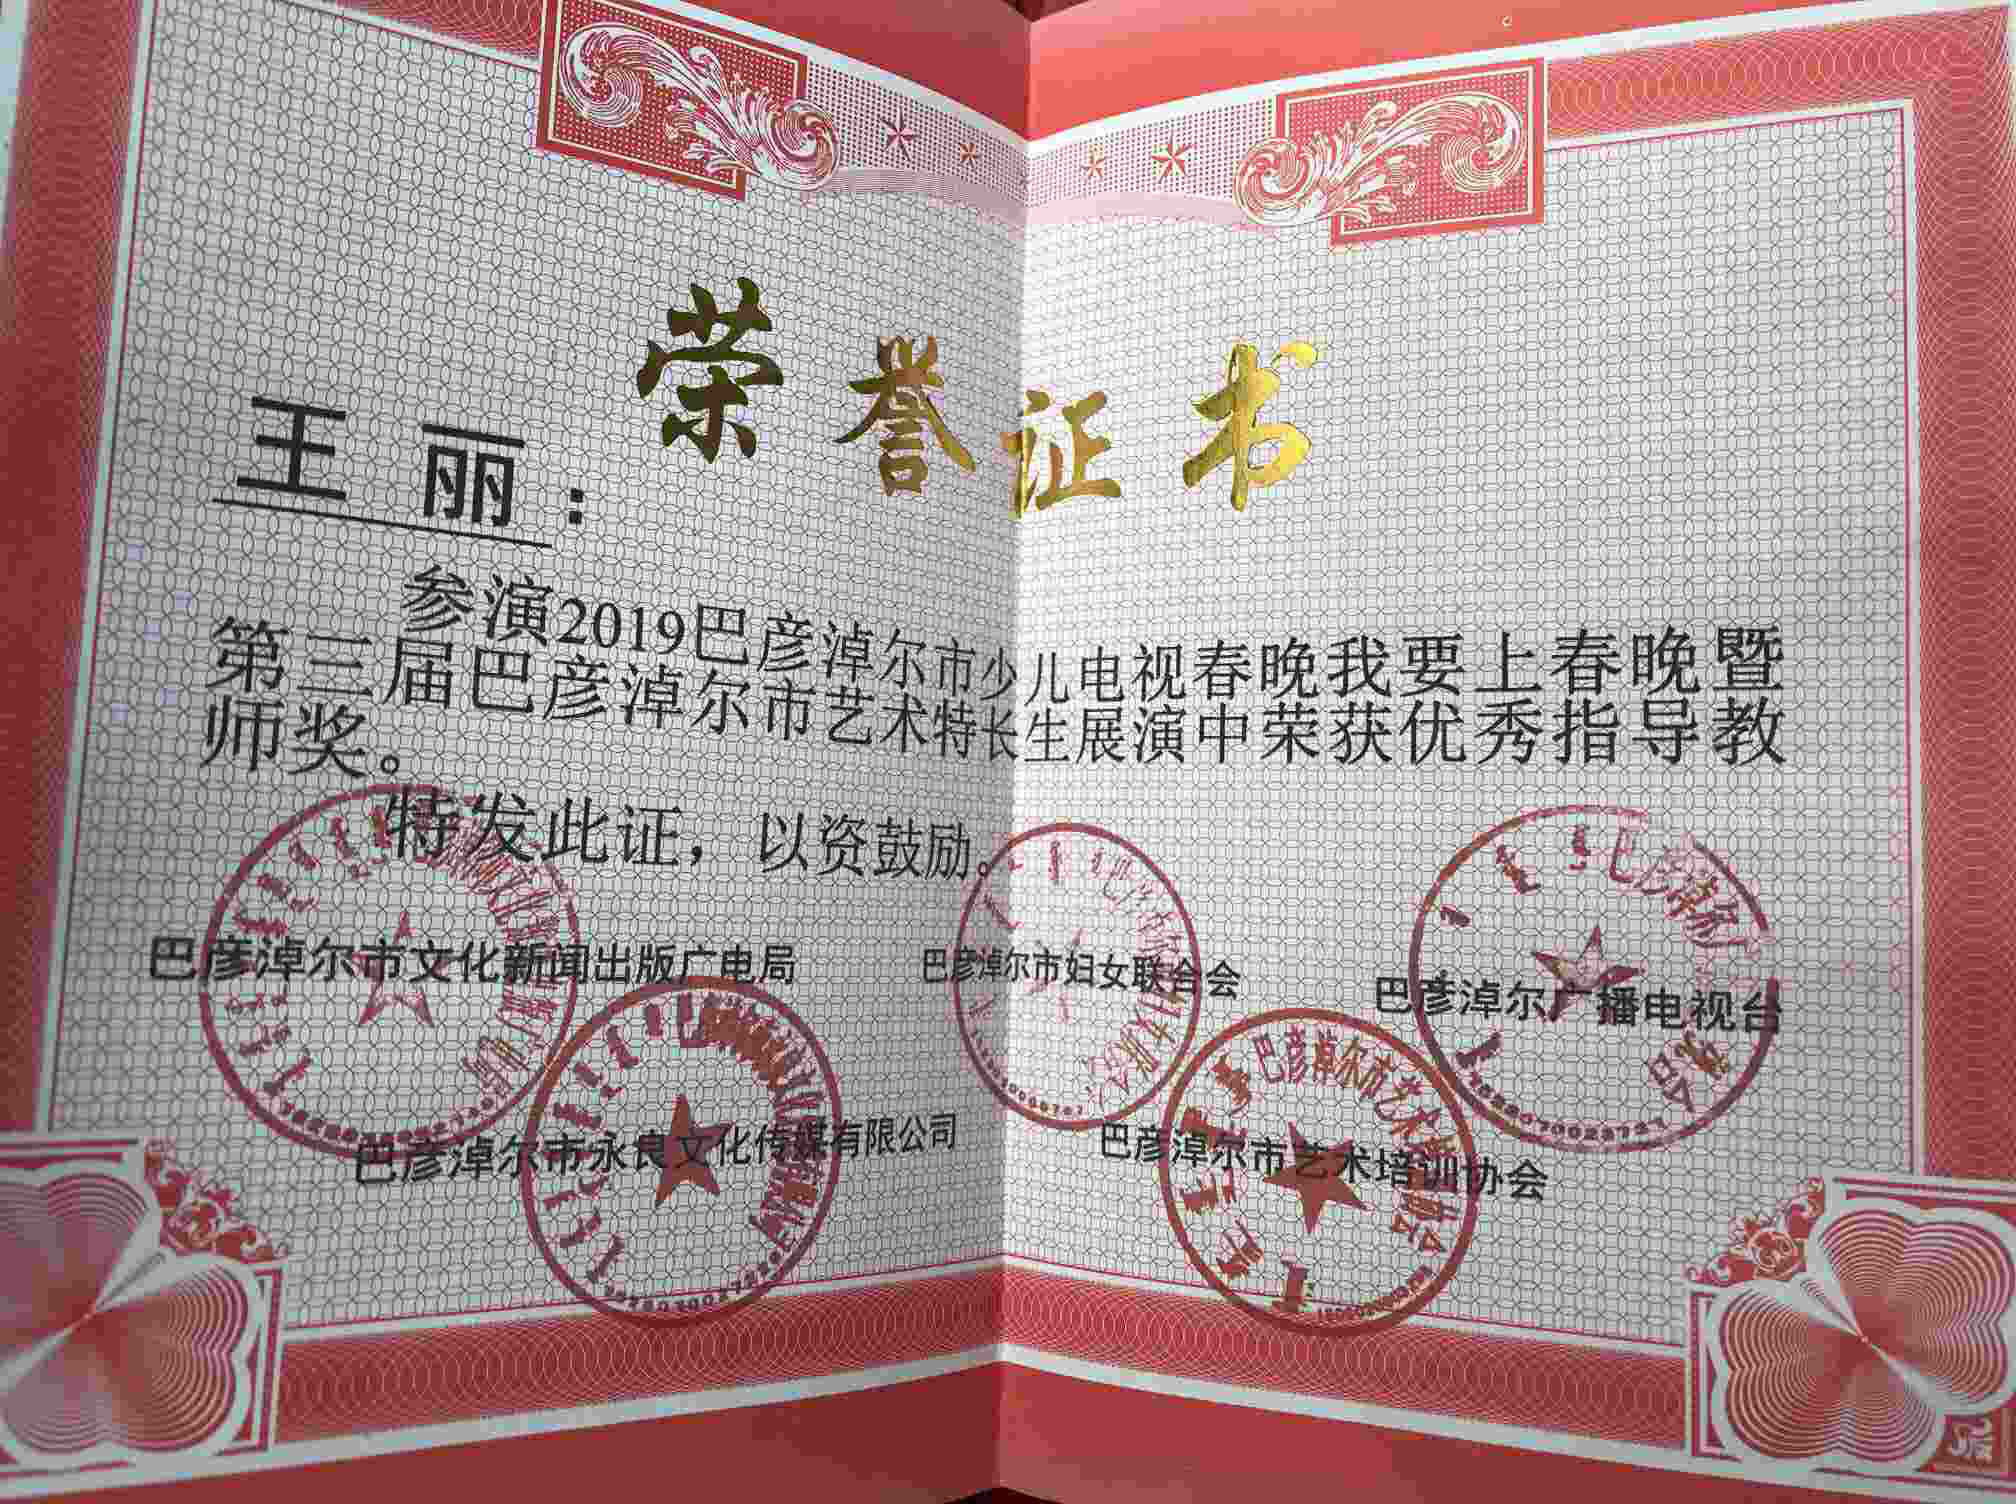 荣誉证书
王丽：
参演2019巴彦淖尔市少儿电视春晚我要上春晚暨
第三届巴彦淖尔市艺术特长生展演中荣获优秀指导教
师奖。
特发此证，以资鼓励。
巴彦淖尔市文化新闻出版广电局
巴彦淖尔市妇女联合会
巴彦淖尔广播电视台
巴彦淖尔市永良文化传媒有限公司
巴彦淖尔市艺术培训协会